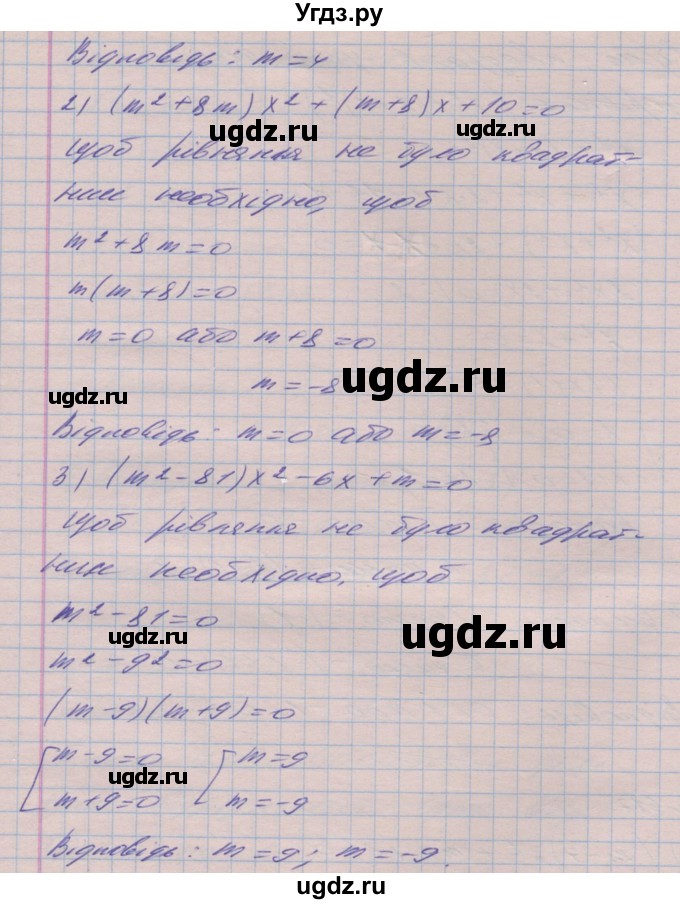 Угдз.ру
Відповідь: m=4
2) (m²+8m)x²+(m+8)x+10=0
ugdz.ru ugdz.ru
Щоб рівняння не було квадрат-
ним необхідно, щоб
m²+8m=0
m(m+8)=0
m=0 або m+8=0
ugdz.ru m=-8 ugdz.ru
Відповідь: m=0 або m=-8
3) (m²-81)x²-6x+m=0
Щоб рівняння не було квадрат-
ним необхідно, щоб
m²-81=0
ugdz.ru ugdz.ru
m²-9²=0
(m-9)(m+9)=0
m-9=0 m=9
ugdz.ru
m+9=0 m=-9
Відповідь: m=9; m=-9.
ugdz.ru